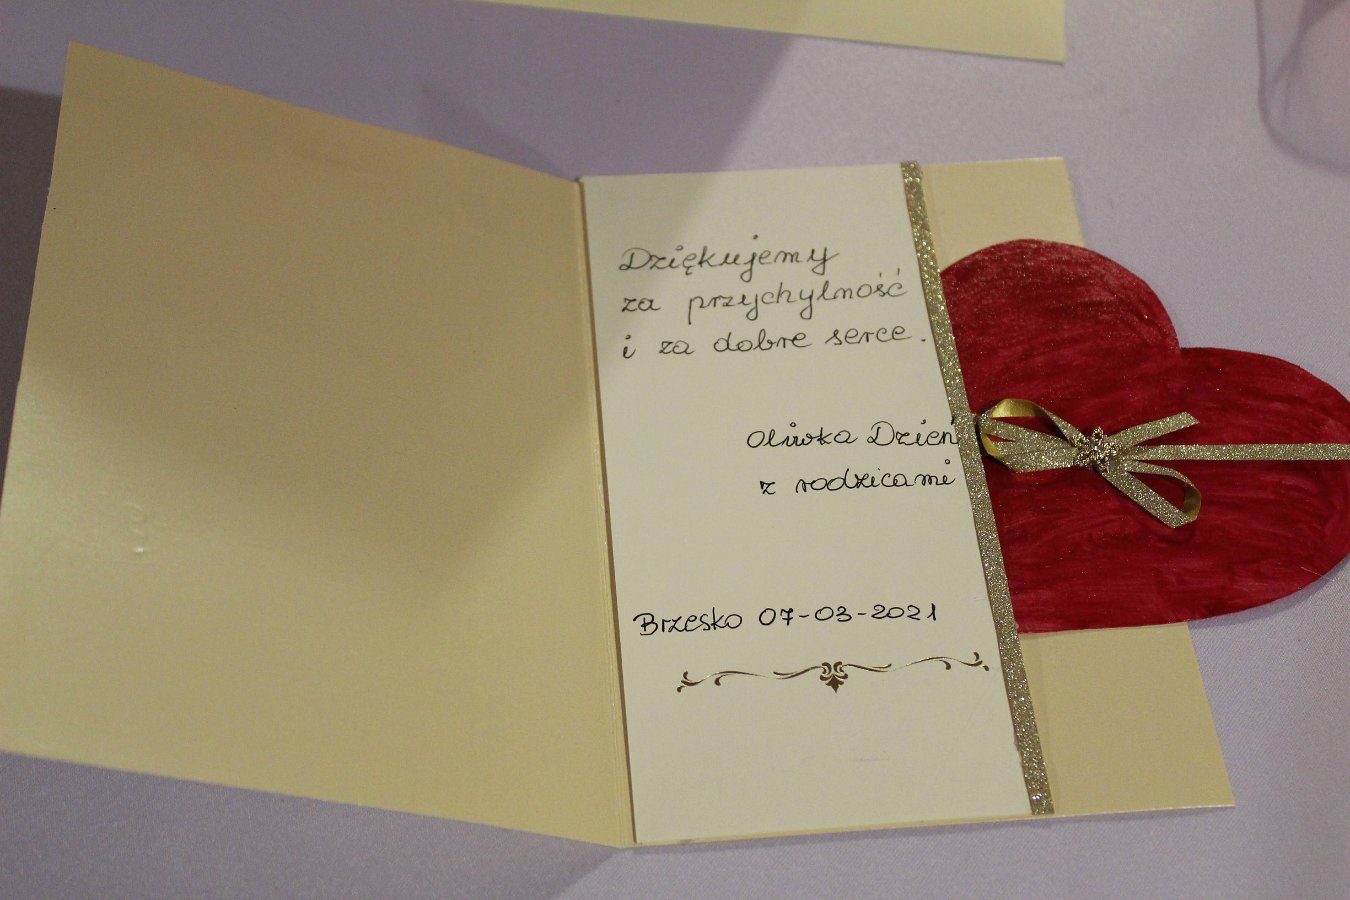 Dziękujemy
za przychylność
i za dobre serce.
Oliwka Dzień
z rodzicami
Brzesko 07-03-2021